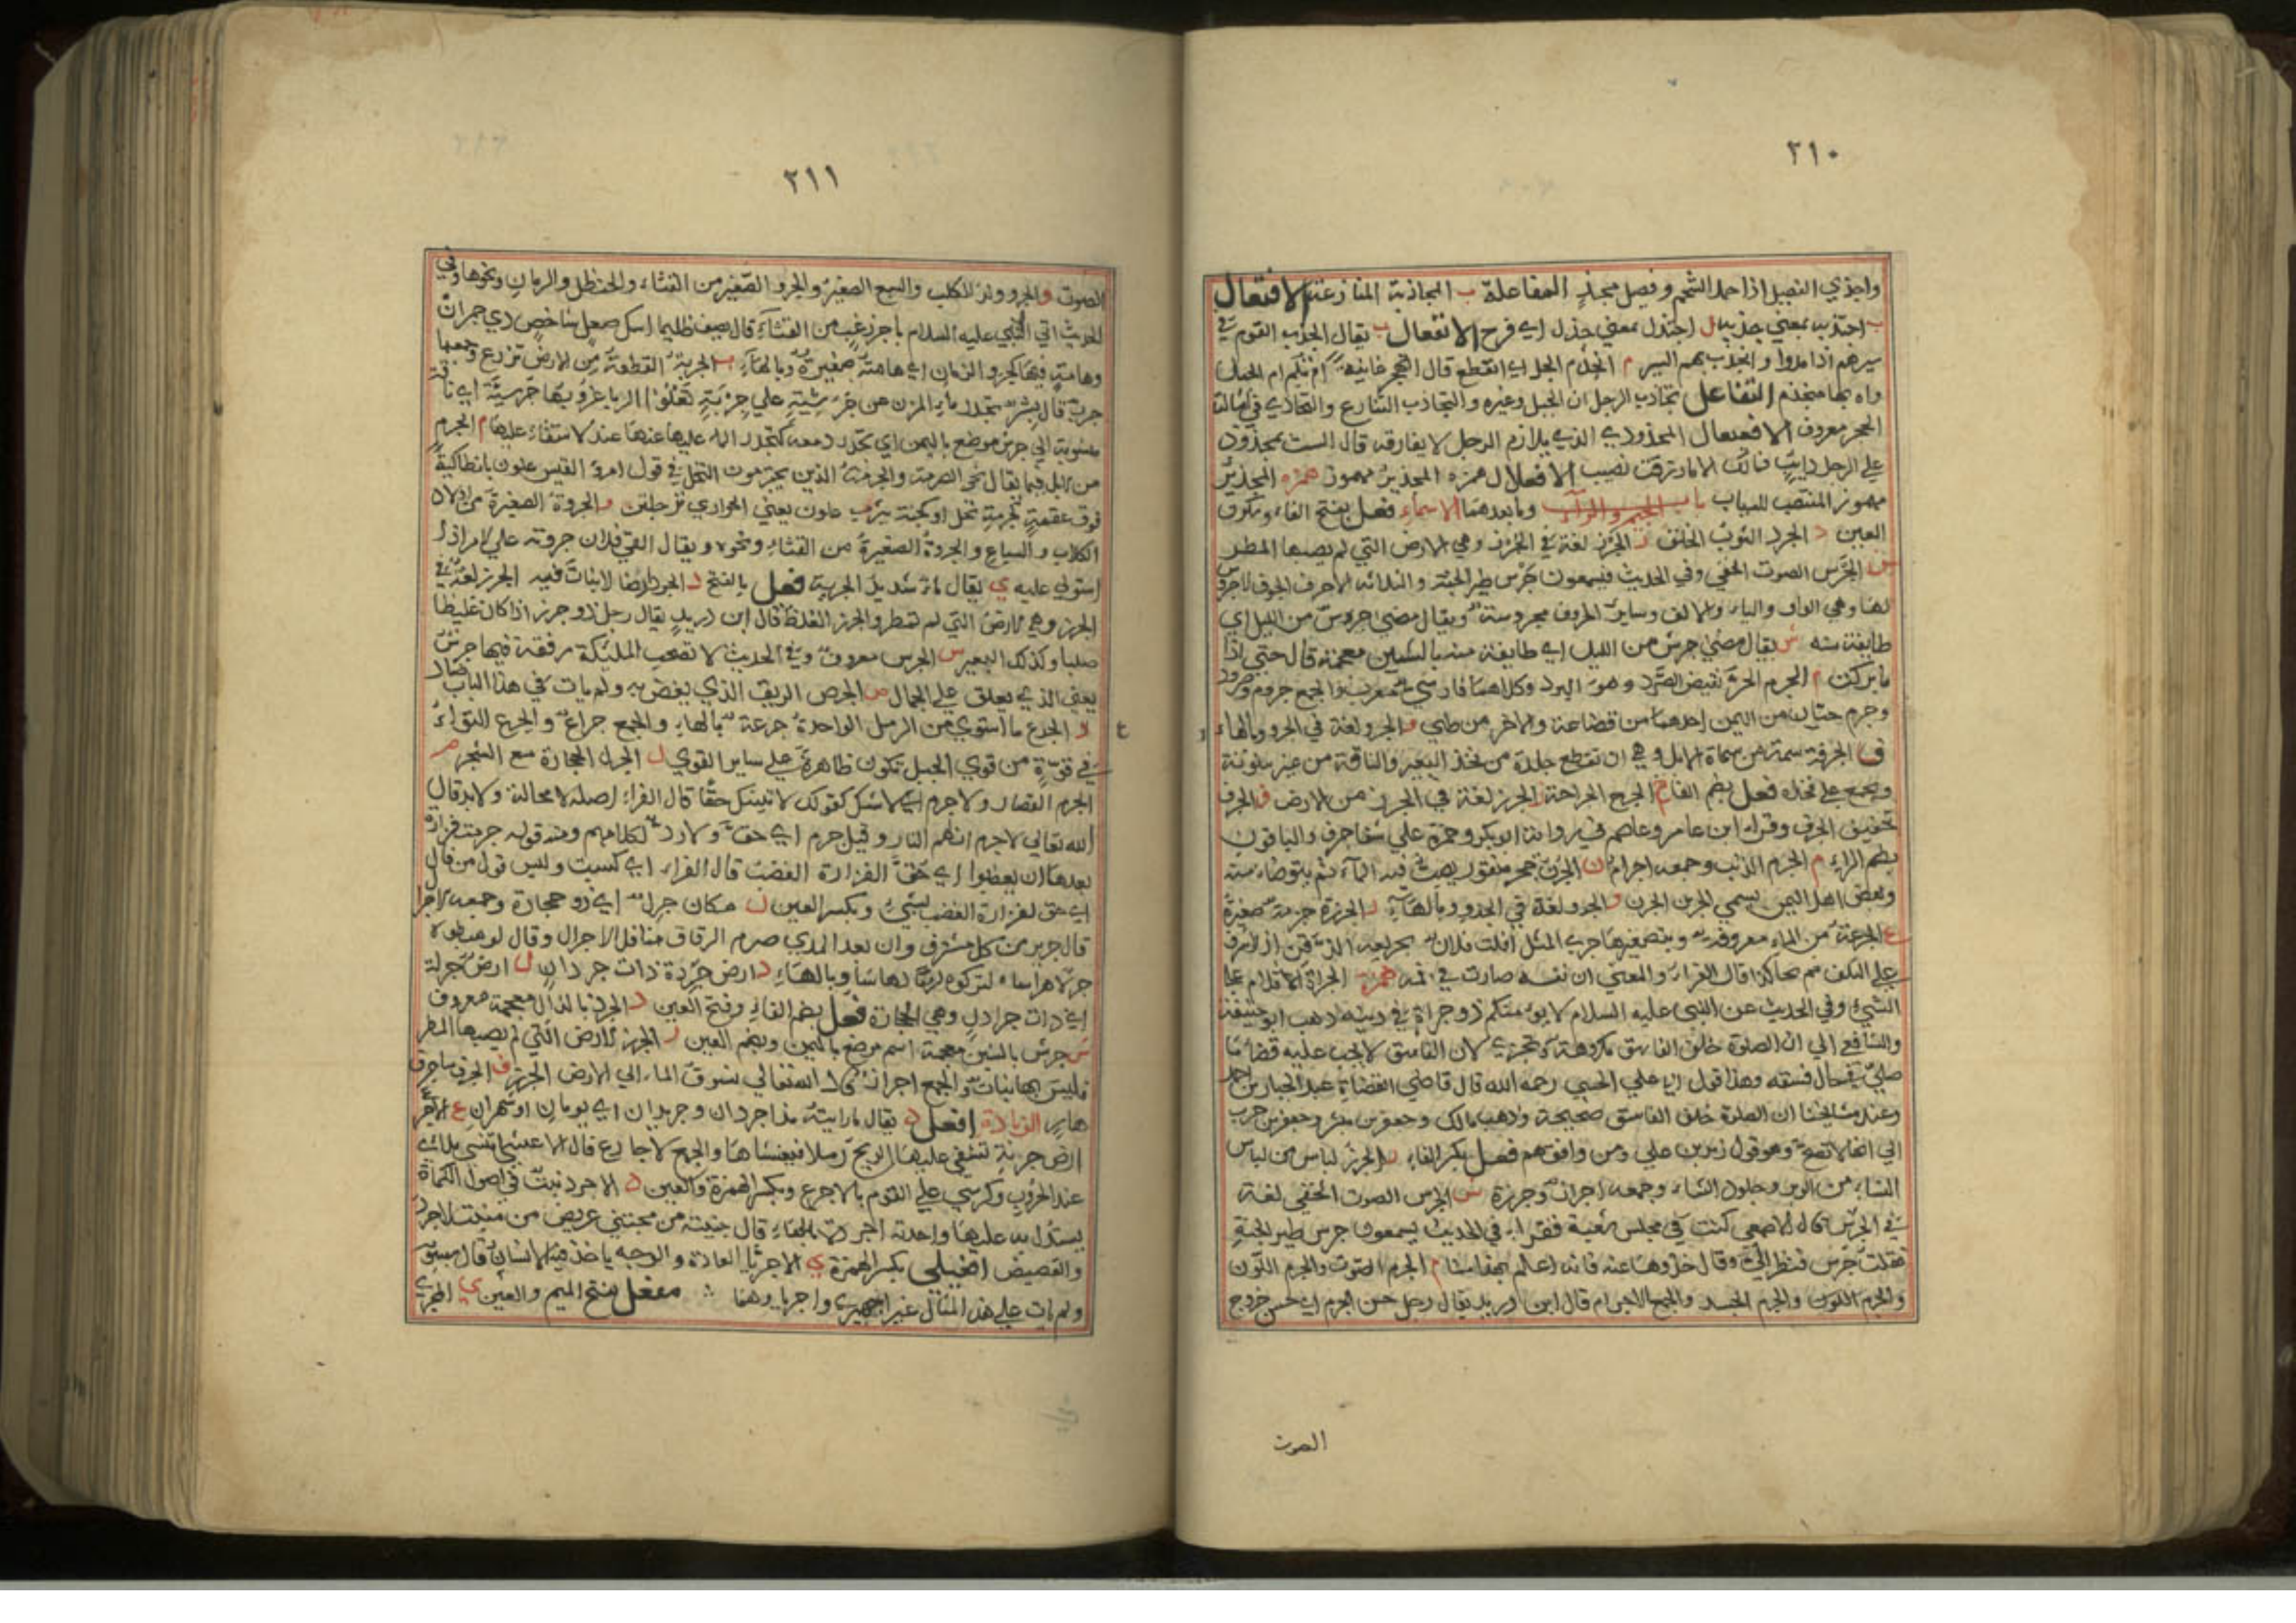 ٢١٠
واجذي الفصيل اذا حمل الشحم وفصيل مجذٍ المفاعلة ب المجاذبة المنازعة الافتعال
ب اجتذب بمعني جذب ل اجتذل بمعني جذل اي فرح الانفعال ب يقال انجذب القوم في
سيرهم اذا مروا وانجذب بهم السير م انجذم الحبل اي انقطع قال
واه بها منجذم التفاعل تجاذب الرجلان الحبل وغيره والتجاذب التنازع والتجاذي في اشالة
الحجر معروف الافعيعال المجذوذي الذي يلازم الرحل لا يفارقه قال الست بمجذوذ
علي الرحل دايب فما لك الا ما رزقت نصيب الافعلال همزه المجذئر مهموز
مهموز المنتصب للسباب باب الجيم والرآء وما بعدهما الاسماء فعل بفتح الفاء وسكون
العين د الجرد الثوب الخلق ز الجرز لغة في الجرز وهي الارض التي لم يصبها المطر
س الجرس الصوت الخفي وفي الحديث فيسمعون جرس طير الجنة والثلاثه الاحرف الجوف لا جروس
لها وهي الواو والياء والالف وساير الحروف مجروسة ويقال مضي جروس من الليل اي
طايفة منه ش يقال مضي جرش من الليل اي طايفة منه بالشين معجمة قال حتي اذا
ما بركت م الجرم الحر نقيض الصرد وهو البرد وكلاهما فارسي معرب والجمع جروم وصرود
وجرم حيان من اليمن احدهما من قضاعة والاخر من طيي و الجرو لغة في الجرو وبالهاء
ف الجرفة سمة من سمات الابل وهي ان تقطع جلدة من فخذ البعير والناقة من غير بينونة
ويجمع علي فخذه فعل بضم الفاء ح الجرح الجراحة ز الجرز لغة في الجرز من الارض ف الجرف
تخفيف الجرف وقراء ابن عامر وعاصم في رواية ابو بكر وحمزة علي شفا جرف والباقون
بضم الراء م الجرم الذنب وجمعه اجرام ن الجرن حجر منقور يصب فيه الماء ثم يتوضاء منه
وبعض اهل اليمن يسمي الجرن الجرن و الجرو لغة في الجرو وبالهاء ز الجرزة حزمة صغيرة
ع الجرعة من الماء معروفة وبتصغيرها جري المثل افلت فلان بجريعة الذقن اذا اشرف
علي التلف ثم نجا كذا قال الفراء والمعني ان نفسه صارت في فمه همزة الجراة الاقدام علي
الشيء وفي الحديث عن النبي عليه السلام لا يؤمنكم ذو جراة في دينه ذهب ابو حنيفة
والشافعي الي ان الصلوة خلف الفاسق مكروهة وتجزي لان الفاسق لا يجب عليه قضا ما
صلي في حال فسقه وهذا قول ابي علي الجبي رحمه الله قال قاضي القضاة عبد الجبار بن احمد
وعند مشايخنا ان الصلوة خلف الفاسق صحيحة وذهب مالك وجعفر بن مبشر وجعفر بن حرب
الي انها لا تصح وهو قول زيد بن علي ومن وافقهم فعل بكسر الفاء ز الجرز لباس من لباس
النساء من الوبر وجلود الشاء وجمعه اجراز وجرزة س الجرس الصوت الخفي لغة
في الجرس قال الاصمعي كنت في مجلس شعبة فقراء في الحديث يسمعون جرش طير الجنة
فقلت جرس فنظر الي وقال خذوها عنه فانه اعلم بهذا منا م الجرم الصوت والجرم اللون
والجرم اللون والجرم الجسد والجمع الاجرام قال ابن دريد يقال رجل حسن الجرم اي حسن خروج
الصوت
٢١١
الصوت و الجرو ولد الكلب والسبع الصغير والجرو الصغير من القثاء والحنظل والرمان ونحوها وفي
الحديث اتي النبي عليه السلام باجر زغب من القثآء قال يصف ظليما اسك صعل شاخص ذي جمران
وهامة فيها كجرو الرمان اي هامته صغيرة وبالهآء ب الجربة القطعة من الارض تزرع وجمعها
جرب قال بشر تحدر ماء المزن عن جرشية علي جربة تعلوا الديار غروبها جرشية اي ناقة
منسوبة الي جرش موضع باليمن اي تحدر دمعه كتحدر الماء عليها عنها عند الاستقاء عليها م الجرم
من النخل فيما يقال نحو الصرمة والجرمة الذين يجترمون النخل في قول امرؤ القيس علون بانطاكية
فوق عقمة كجرمة نخل او كجنة يثرب علون يعني الجواري ترحلن و الجروة الصغيرة من اولاد
الكلاب والسباع والجروة الصغيرة من القثاء ونحوه ويقال القي فلان جروته علي الامر اذا
استولي عليه ي يقال شديد الجرية فعل بالفتح د الجرد الفضا لا نبات فيه الجرز لغة في
الجرز وهي الارض التي لم تمطر والجرز الغلظ قال ابن دريد يقال رجل ذو جرز اذا كان غليظا
صلبا وكذلك البعير س الجرس معروف وفي الحديث لا تصحب المليكة رفقة فيها جرس
يعني الذي يعلق علي الجمال ض الجرض الريق الذي يغص به ولم يات في هذا الباب صاد
ع الجرع ما استوي من الرمل الواحدة جرعة بالهاء والجمع جراع والجرع التواء
في قوة من قوي الحبل تكون ظاهرة علي ساير القوي ل الجرل الحجارة مع الشجر م
الجرم القصار ولا جرم اي لا شك كقولك لا تشك حقا قال الفراء اصله لا محالة ولا بد قال
الله تعالي لا جرم ان لهم النار وقيل جرم اي حق ولا رد لكلامهم ومنه قوله جرمت فزارة
بعدها ان يغضبوا اي حق لفزارة الغضب قال الفراء اي كسبت وليس قول من قال
اي حق لفزارة الغضب بشيء وبكسر العين ل مكان جرل اي ذو حجارة وجمعه اجرال
قال جرير من كل مشترف وان بعد المدي ضرم الرقاق مناقل الاجرال وقال لو هبطوه
جرلا هراسا لتركوه دمثا دهاسا وبالهاء د ارض جردة ذات جردان ل ارض جرلة
اي ذات جراول وهي الحجارة فعل بضم الفاء وفتح العين ذ الجرذ بالذال معجمة معروف
ش جرش بالشين معجمة اسم موضع باليمن وبضم العين ز الجرز الارض التي لم يصبها المطر
فليس بها نبات والجمع اجراز قال الله تعالي نسوق الماء الي الارض الجرز ف الجرف ما جرف
هار الزيادة افعل د يقال ما رايته مذ اجردان وجريدان اي يومان او شهران ع الاجرع
ارض جرية تسفي عليها الريح رملا فيغشاها والجمع الاجارع قال
عند الحروب وكرسي علي القوم بالاجرع وبكسر الهمزة والعين د الاجرد نبت في اصول الكماة
يستدل به عليها واحدته اجردة بالهاء قال جنيتها من مجتني عويص من منبت الاجرد
والقصيص افعيلي بكسر الهمزة ي الاجريا العادة والوجه ياخذ فيه الانسان قال
ولم يات علي هذا المثال غير اهجيري واجريا وهما مفعل بفتح الميم والعين ي المجري